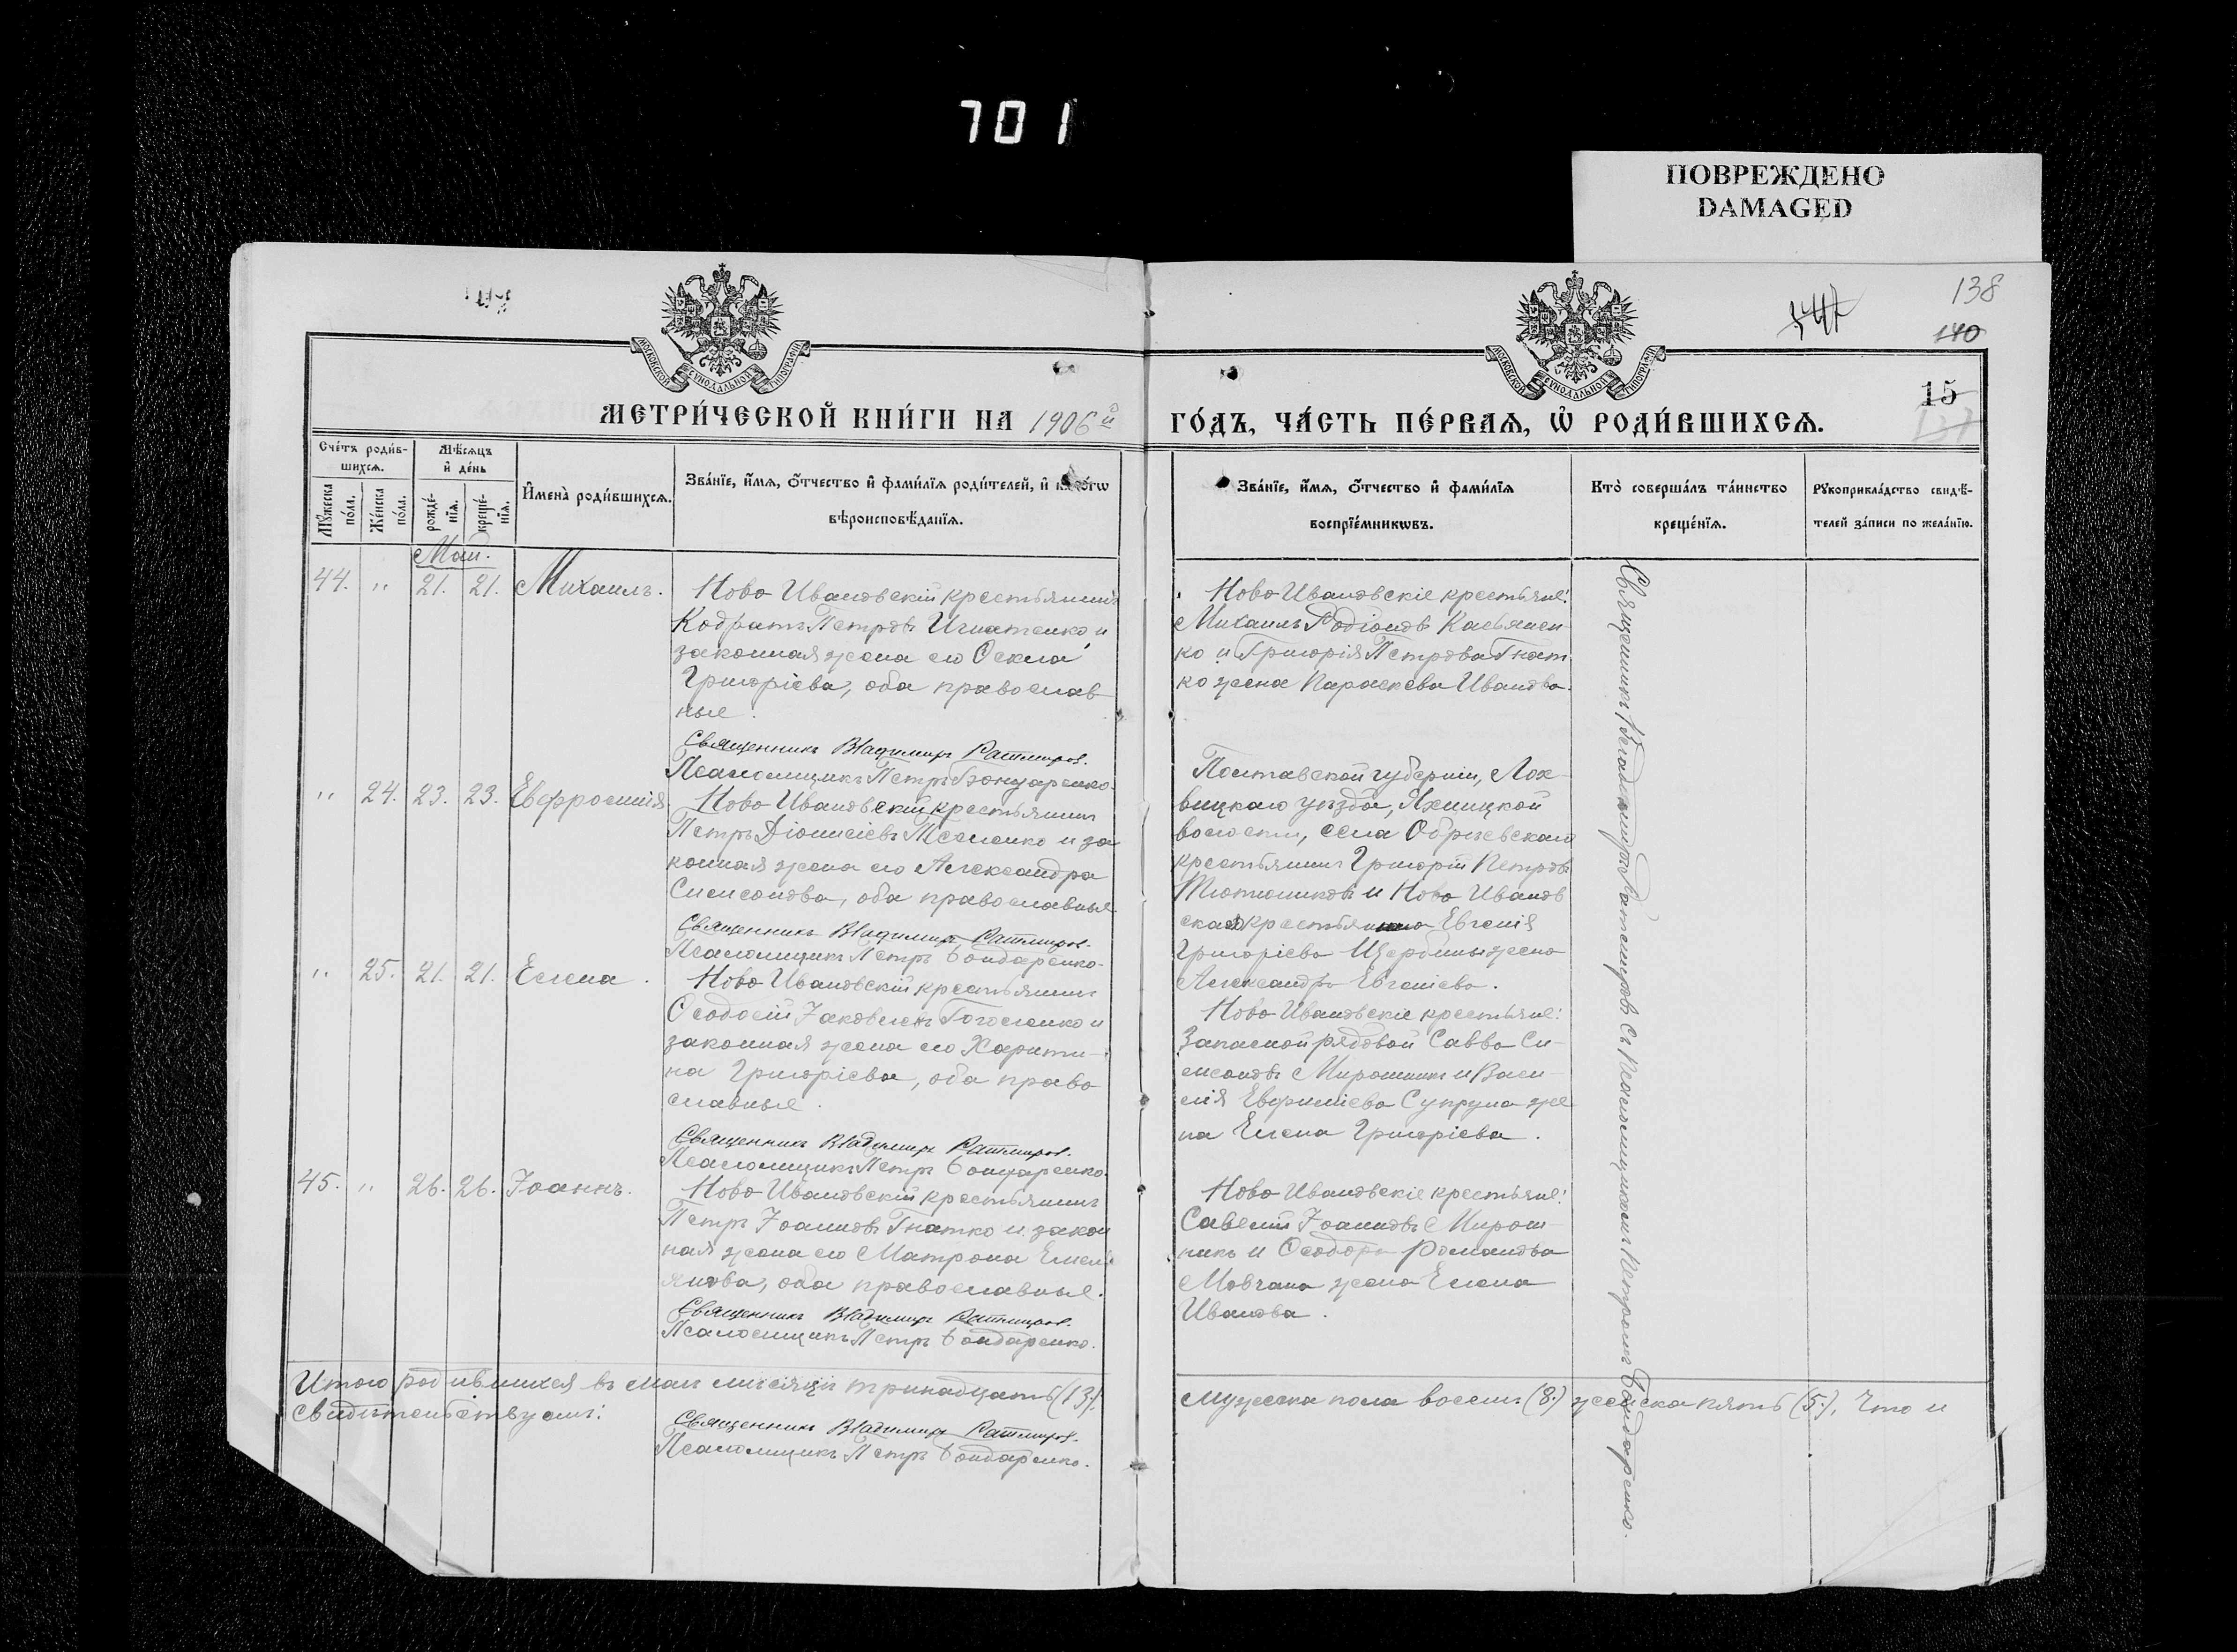 701
ПОВРЕЖДЕНО
DAMAGED
138
140
15
137
МОСКОВСКОЙ СѴНОДАЛЬНОЙ ТИПОГРАФІИ
МОСКОВСКОЙ СѴНОДАЛЬНОЙ ТИПОГРАФІИ
МЕТРИ́ЧЕСКОЙ КНИ́ГИ НА 1906й
ГО́ДЪ, ЧА́СТЬ ПЕ́РВАѦ, Ѡ҆ РОДИ́ВШИХСѦ.
Сче́тъ роди́в-
шихсѧ.
Мѣ́сѧцъ
и҆ де́нь
Мꙋ́жеска
по́ла.
Же́нска
по́ла.
рожде́-
нїѧ.
креще́-
нїѧ.
И҆мена̀ роди́вшихсѧ.
Зва́нїе, и҆́мѧ, ѻ҆́тчество и҆ фами́лїѧ роди́телей, и҆ како́гѡ
вѣроисповѣ́данїѧ.
Зва́нїе, и҆́мѧ, ѻ҆́тчество и҆ фами́лїѧ
воспрїе́мникѡвъ.
Кто̀ соверша́лъ та́инство
креще́нїѧ.
Рꙋкоприкла́дство свидѣ́-
телей за́писи по жела́нїю.
Май.
44. " 21. 21. Михаилъ.
Ново Ивановскій крестьянинъ
Кодратъ Петровъ Игнатенко и
законная жена его Ѳекла
Григоріева, оба православ
ные.
Священникъ Владимиръ Ратмиров.
Псаломщикъ Петръ Бондаренко.
Ново Ивановскіе крестьяне:
Михаилъ Родіоновъ Касьянен
ко и Григорія Петрова Гнат
ко жена Параскева Иванова.
" 24. 23. 23. Евфросинія
Ново Ивановскій крестьянинъ
Петръ Діонисіевъ Тесленко и за
конная жена его Александра
Симсонова, оба православные.
Священникъ Владимиръ Ратмиров.
Псаломщикъ Петръ Бондаренко.
Полтавской губерніи, Лох-
вицкаго уѣзда, Яхницкой
волости, села
крестьянинъ Григорій Петровъ
Тютюниковъ и Ново Иванов
ская крестьянина Евгенія
Григоріева Щербины жена
Александра Евгеніева.
" 25. 21. 21. Елена.
Ново Ивановскій крестьянинъ
Ѳеодосій Іаковлевъ Гоголенко и
законная жена его Харити-
на Григоріева, оба право
славные.
Священникъ Владимиръ Ратмиров.
Псаломщикъ Петръ Бондаренко.
Ново Ивановскіе крестьяне:
Запасной рядовой Савва Си-
мсоновъ Мирошникъ и Васи-
лія Евфиміева Супруна же
на Елена Григоріева.
45. " 26. 26. Іоаннъ.
Ново Ивановскій крестьянинъ
Петръ Іоанновъ Гнатко и закон
ная жена его Матрона Емелі
янова, оба православные.
Священникъ Владимиръ Ратмиров.
Псаломщикъ Петръ Бондаренко.
Ново Ивановскіе крестьяне:
Савелій Іоанновъ Мирош-
никъ и Ѳеодора Романова
Мовчана жена Елена
Иванова.
Священникъ Владимиръ Ратмировъ съ Псаломщикомъ Петромъ Бондаренко.
Итого родившихся въ маѣ мѣсяцѣ тринадцать (13.)
мужеска пола восемь (8.) женска пять (5.), Что и
свидѣтельствуемъ:
Священникъ Владимиръ Ратмиров.
Псаломщикъ Петръ Бондаренко.